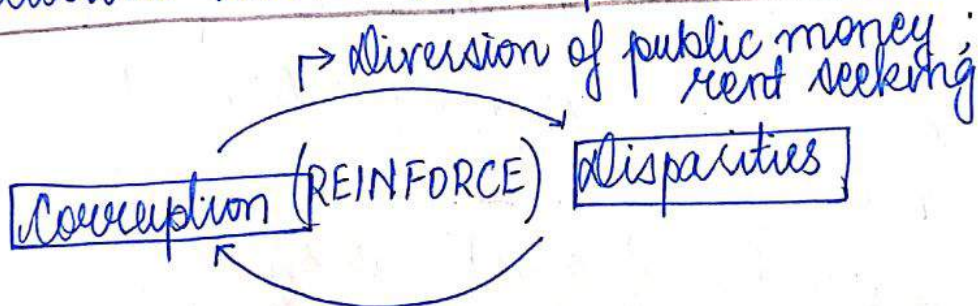 Diversion of public money;
rent seeking
Corruption (REINFORCE) Disparities